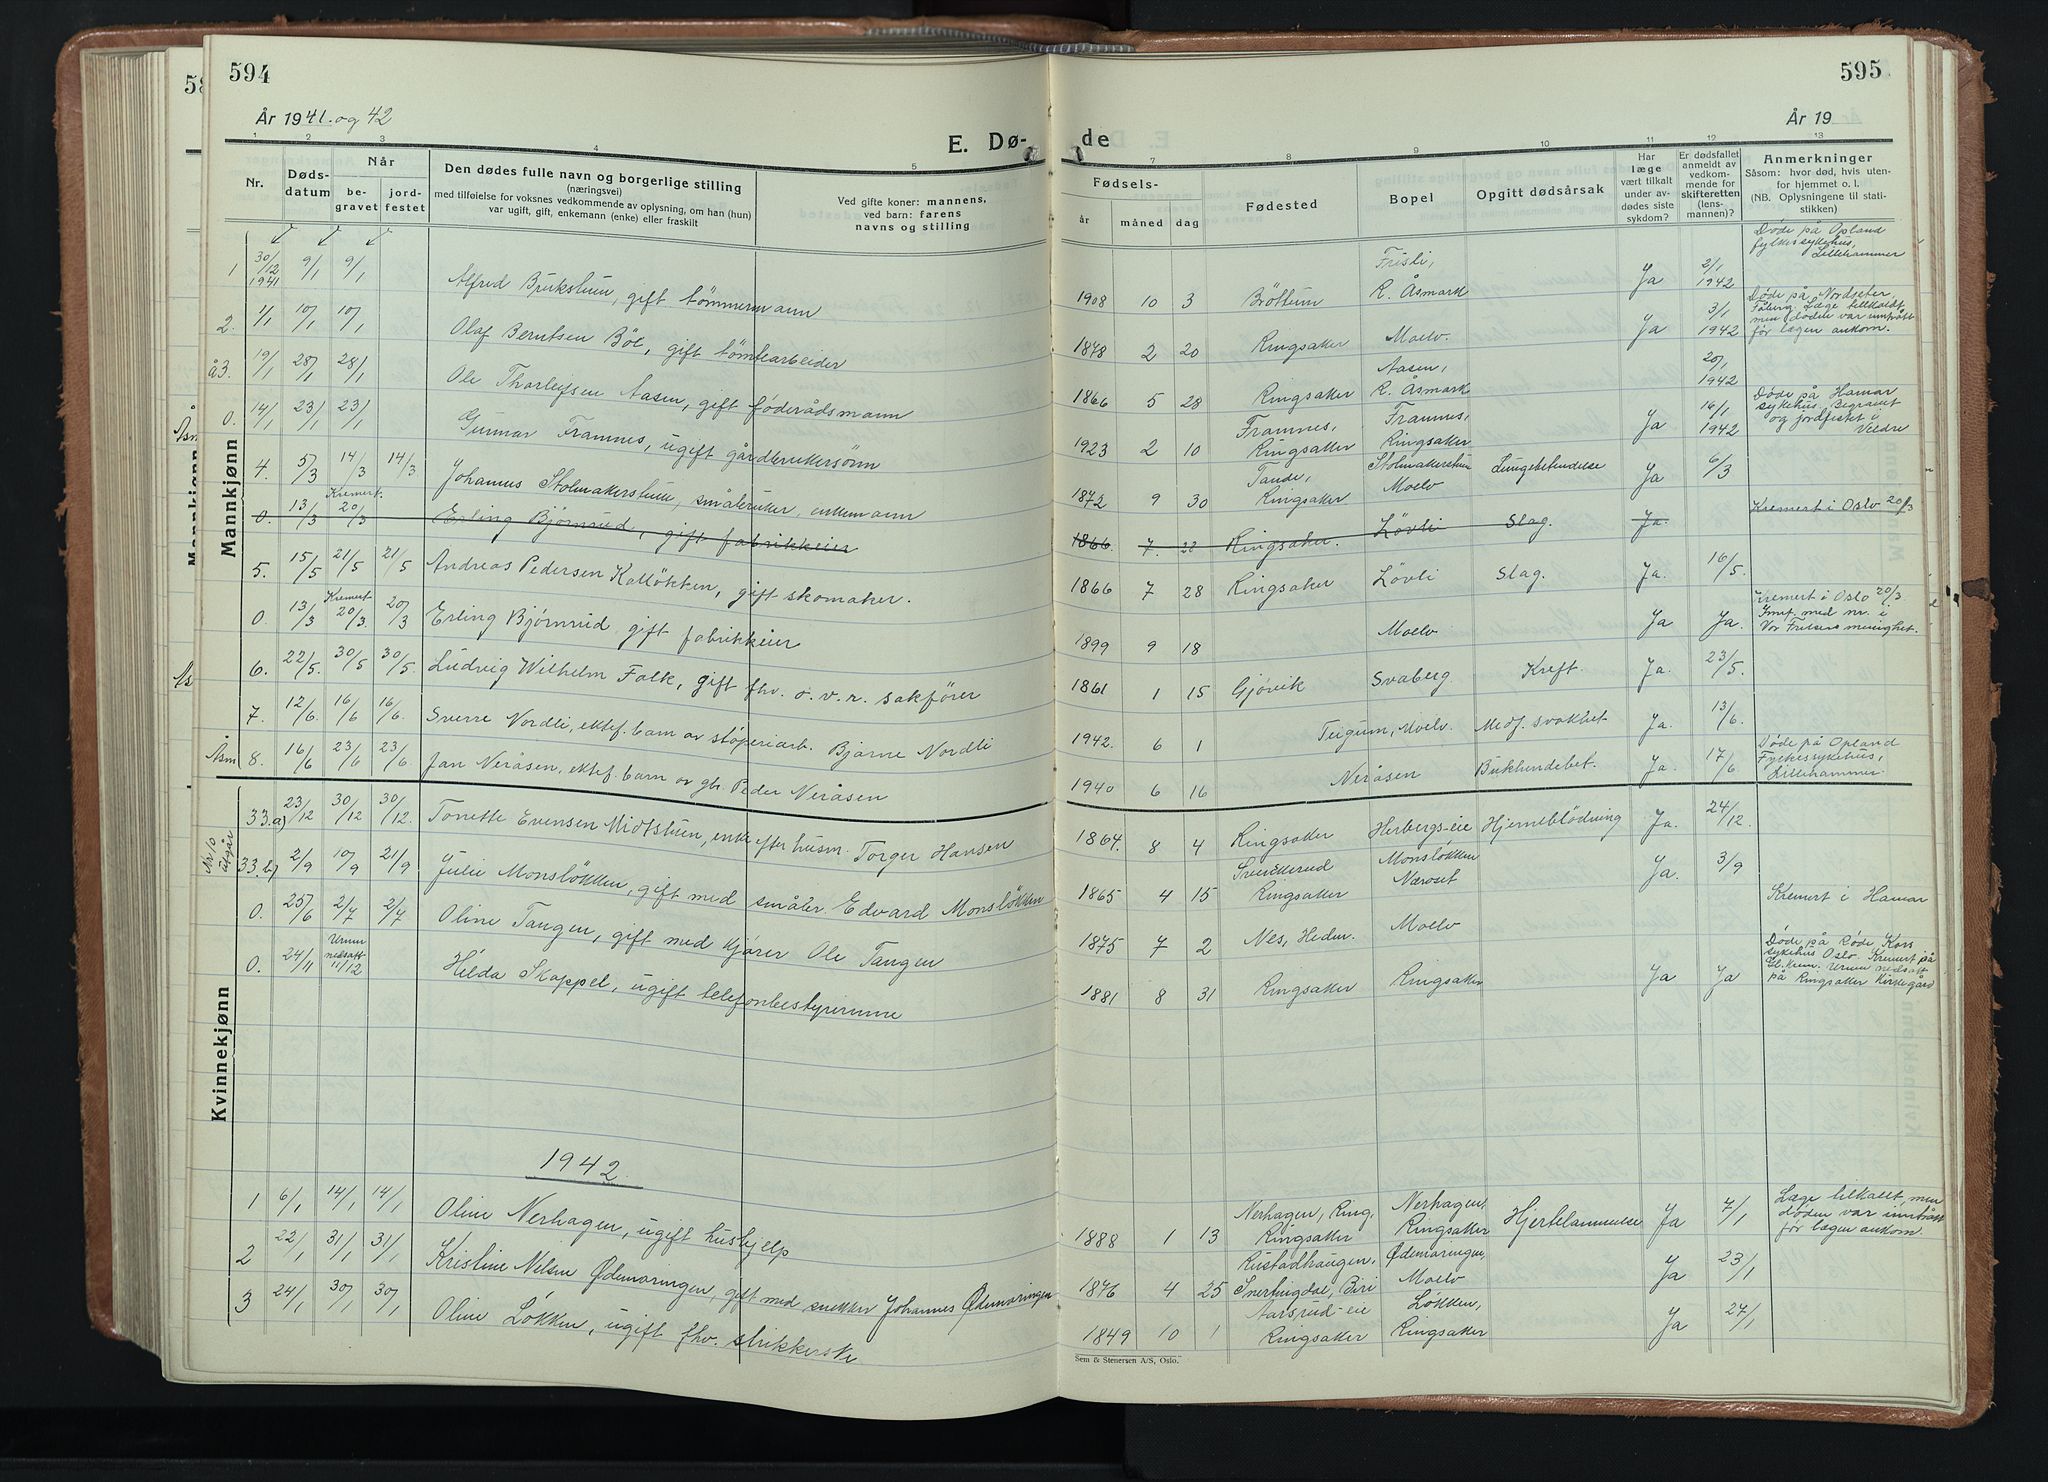 594
595
År 1941. og 42
År 19
E. Dø- de
1 2 3 4 5 7 8 9 10 11 12 13
Nr.
Døds-
datum
Når
be-
gravet
jord-
festet
Den dødes fulle navn og borgerlige stilling
(næringsvei)
med tilføielse for voksnes vedkommende av oplysning, om han (hun)
var ugift, gift, enkemann (enke) eller fraskilt
Ved gifte koner: mannens,
ved barn: farens
navns og stilling
Fødsels-
år måned dag
Fødested
Bopel
Opgitt dødsårsak
Har
læge
vært tilkalt
under av-
dødes siste
sykdom?
Er dødsfallet
anmeldt av
vedkom-
mende for
skifteretten
(lens-
mannen)?
Anmerkninger
Såsom: hvor død, hvis uten-
for hjemmet o. l.
(NB. Oplysningene til stati-
stikken)
Mannkjønn
1 30/12 1941 9/1 9/1 Alfred Brukstuen, gift tömmermann 1908 10 3 Bröttum Frisli, R. Åsmark Ja 2/1 1942 Døde på Opland fylkessykehus, Lillehammer
2. 1/1 10/1 10/1 Olaf Berntsen Böe, gift tömtearbeider 1878 2 20 Ringsaker Moelv. Ja 3/1 1942 Døde på Nordseter Fåberg. Læge tilkaldt men døden var inntrått før lægen ankom.
å3. 19/1 28/1 28/1 Ole Thorleifsen Aasen, gift föderådsmann 1866 5 28 Ringsaker Aasen, R. Åsmark 20/1 1942
0. 14/1 23/1 23/1 Gunnar Framnes, ugift gårdbrukersönn 1923 2 10 Framnes, Ringsaker Framnes, Ringsaker Ja 16/1 1942 Døde på Hamar sykehus. Begravet og jordfestet i Veldre
4. 5/3 14/3 14/3 Johannes Stolmakerstuen, småbruker, enkemann 1872 9 30 Tande, Ringsaker Stolmakerstuen Moelv Lungebetendelse Ja 6/3
0. 13/3 Kremert. 20/3 Erling Bjørnrud, gift fabrikkeier 1866 7. 28 Ringsaker. Løvli Slag. Ja. Kremert i Oslo 20/3
5. 15/5 21/5 21/5 Andreas Pedersen Kalløkken, gift skomaker. 1866 7 28 Ringsaker Løvli Slag. Ja. 16/5.
0. 13/3 Kremert 20/3. 20/3 Erling Bjørnrud gift fabrikkeier 1899 9 18 Moelv Ja Ja. Kremert i Oslo 20/3. Innf. med nr. i Vor Frelsers menighet.
6. 22/5. 30/5 30/5. Ludvig Wilhelm Falk, gift fhv. o. v. r. sakfører 1861 1 15 Gjøvik Svaberg Kreft. Ja. 23/5.
7. 12/6. 16/6 16/6. Sverre Nordli, ektef. barn av støperiarb. Bjarne Nordli 1942. 6 1 Teigum, Moelv. Medf. svakhet Ja. 13/6.
Åsm 8. 16/6 23/6 23/6. Jan Neråsen, ektef. barn av gbr. Peder Neråsen 1940 6 16 Neråsen Bukhindebet. Ja. 17/6 Døde på Opland Fylkessykehus, Lillehammer.
Kvinnekjønn
33.a) 23/12 30/12 30/12. Tonette Evensen Midtstuen, enke efter husm. Torger Hansen 1864. 8 4 Ringsaker Herbergs-eie Hjerneblödning Ja. 24/12.
Nr 10 utgår 33.b) 2/9 10/9 21/9 Julie Monsløkken, gift med småbr. Edvard Monsløkken 1865 4 15 Ringsaker Monsløkken Næroset Ja. 3/9
0. 25/6 2/7 2/7 Oline Tangen, gift med kjører Ole Tangen 1875 7 2 Nes, Hedm. Moelv Kremert i Hamar
0. 24/11 Urnen nedsatt 11/12 Hilda Skappel, ugift telefonbestyrerinne 1881 8 31 Ringsaker Ringsaker Ja Ja Døde på Røde Kors sykehus Oslo. Kremert på Gl. krem. Urnen nedsatt på Ringsaker Kirkegård
1942
1 6/1 14/1 14/1 Oline Nerhagen, ugift hushjelp 1888 1 13 Nerhagen, Ring, Ringsaker Nerhagen, Ringsaker Hjertelammelse Ja 7/1 Læge tilkallt, men døden var inntrått før lægen ankom.
2 22/1 31/1 31/1 Kristine Nilsen Ødemoringen, gift med snekker Johannes Ødemoringen 1876 4 25 Rustadhaugen, Snertingdal, Biri Ødemoringen, Moelv Ja 23/1
3 24/1 30/1 30/1 Oline Løkken, ugift fhv. strikkerske 1849 10 1 Aarsrud-eie Ringsaker Løkken, Ringsaker Ja 27/1
Sem & Stenersen A/S, Oslo.